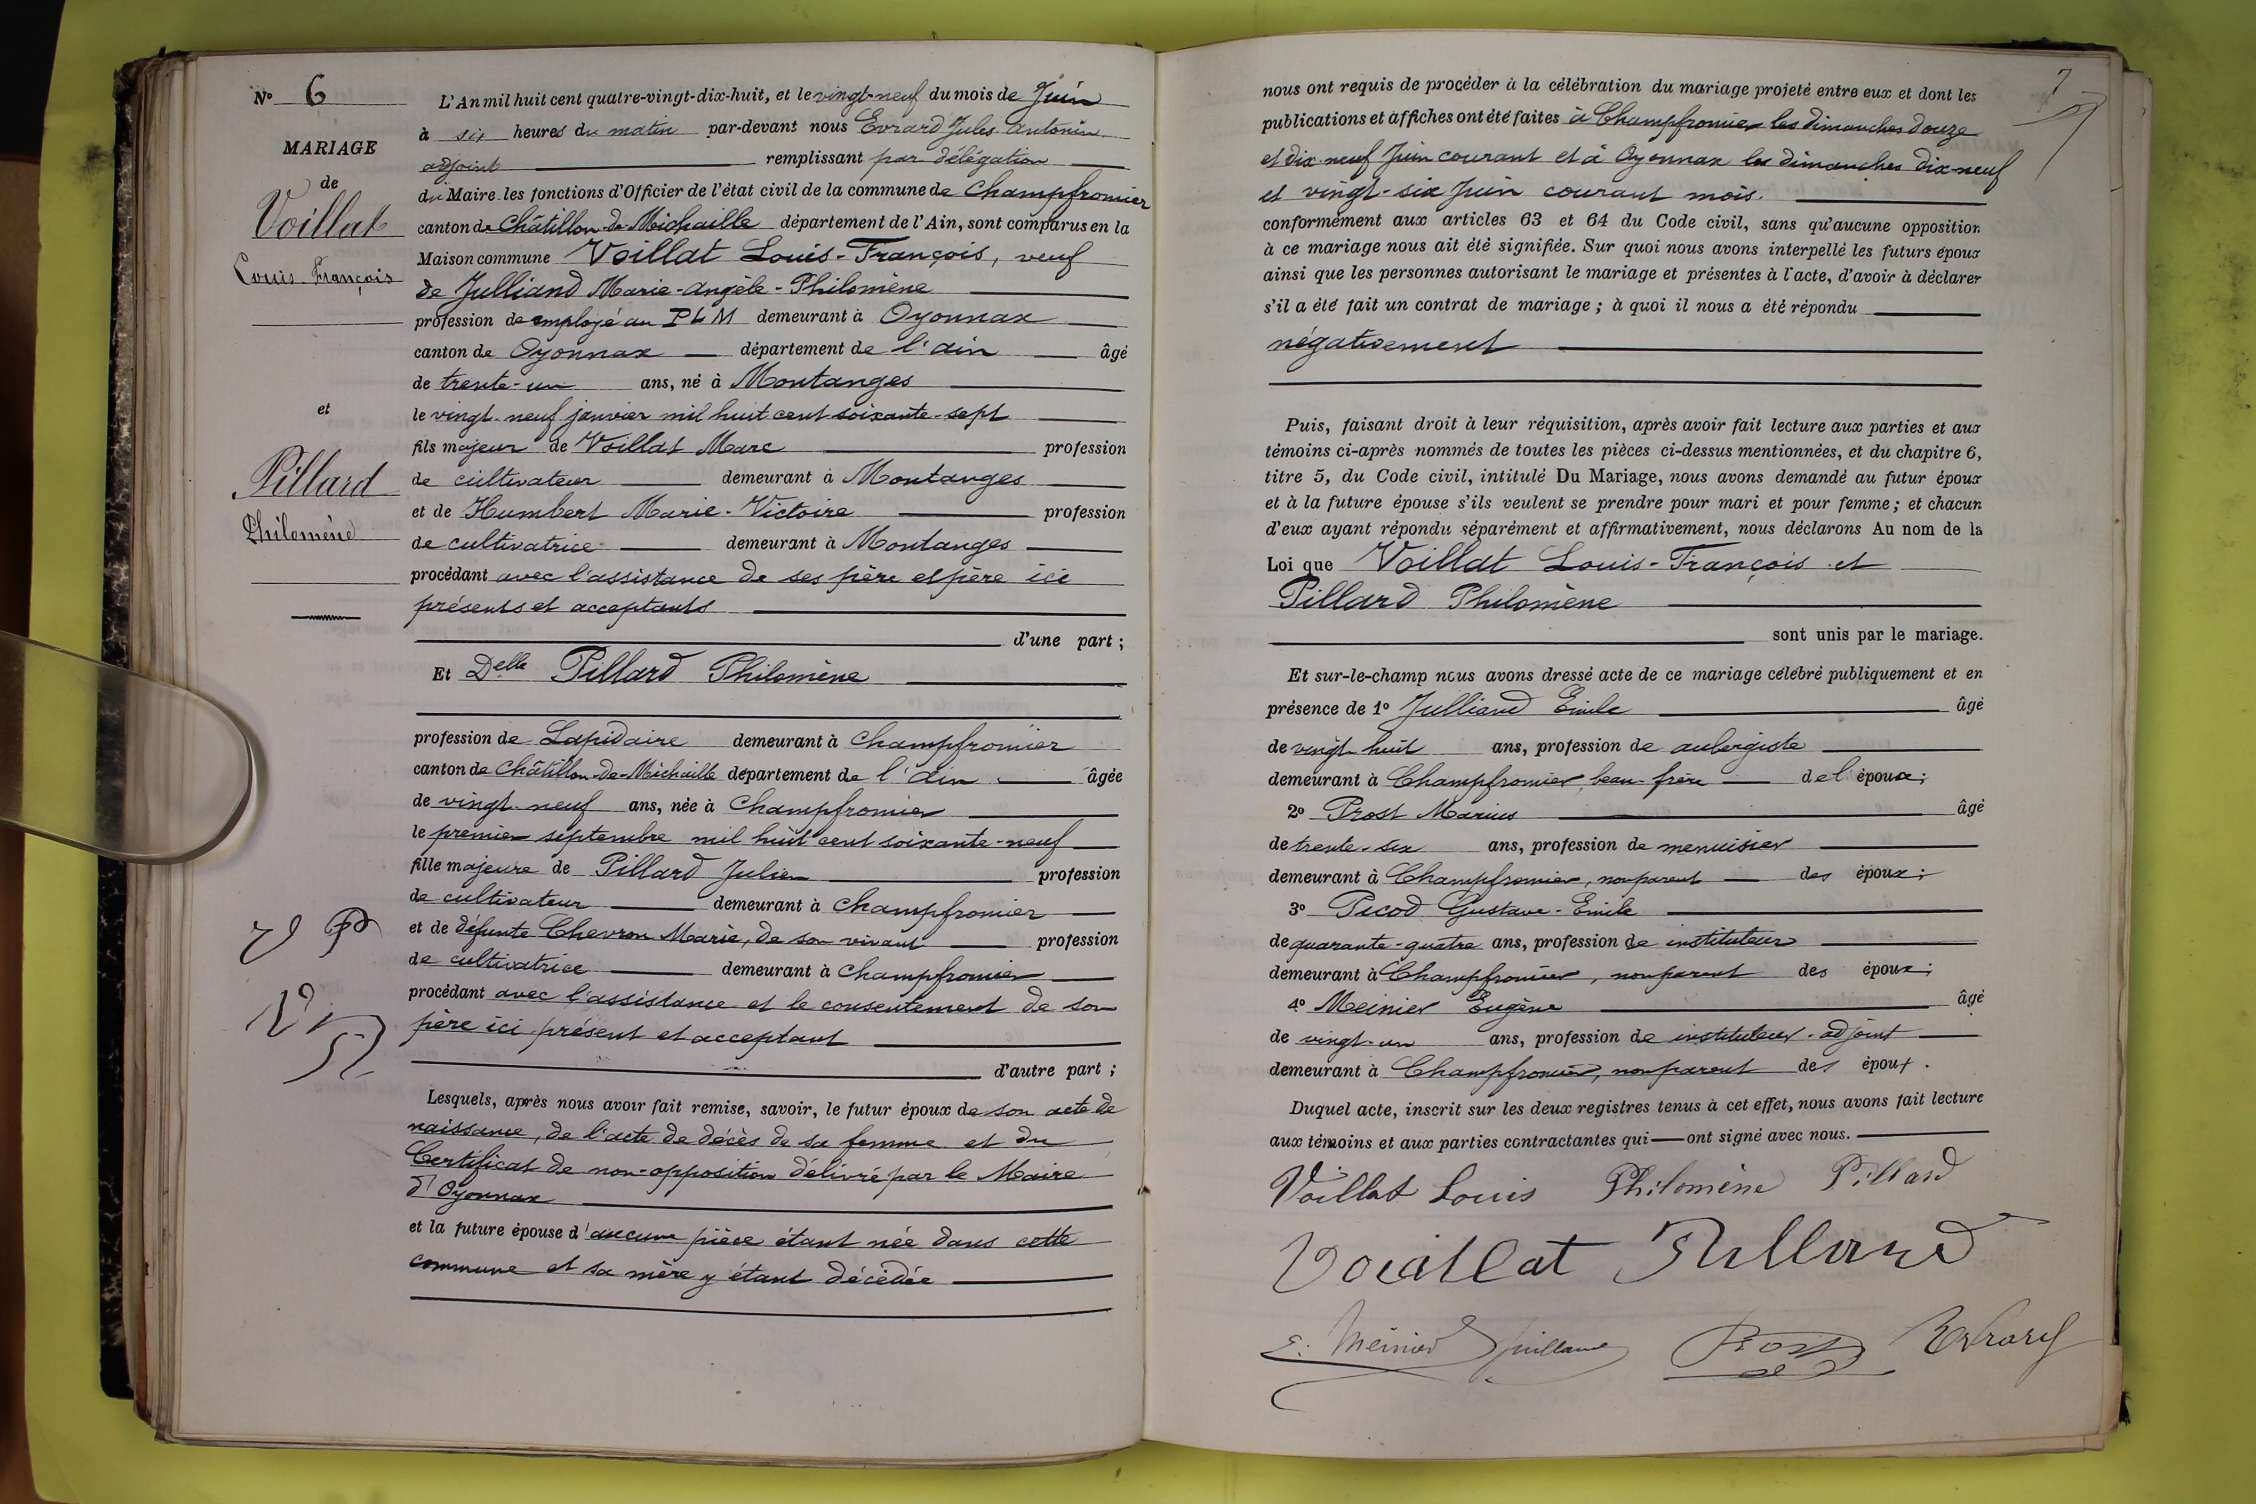 Nº 6
MARIAGE
de
Voillat
Louis-François
et
Pillard
Philomène
L'An mil huit cent quatre-vingt-dix-huit, et le vingt-neuf du mois de Juin
à six heures du matin par-devant nous Evrard Jules Antonin
adjoint remplissant par délégation
du Maire les fonctions d'Officier de l'état civil de la commune de Champfromier
canton de Châtillon-de-Michaille département de l'Ain, sont comparus en la
Maison commune Voillat Louis-François, veuf
de Julliand Marie-Angèle-Philomène
profession de employé au PLM demeurant à Oyonnax
canton de Oyonnax département de l'Ain âgé
de trente-un ans, né à Montanges
le vingt-neuf janvier mil huit cent soixante-sept
fils majeur de Voillat Marc profession
de cultivateur demeurant à Montanges
et de Humbert Marie-Victoire profession
de cultivatrice demeurant à Montanges
procédant avec l'assistance de ses père et père ici
présents et acceptants
d'une part ;
Et Delle Pillard Philomène
profession de Lapidaire demeurant à Champfromier
canton de Châtillon-de-Michaille département de l'Ain âgée
de vingt-neuf ans, née à Champfromier
le premier septembre mil huit cent soixante-neuf
fille majeure de Pillard Julien profession
de cultivateur demeurant à Champfromier
et de défunte Chevron Marie, de son vivant profession
de cultivatrice demeurant à Champfromier
procédant avec l'assistance et le consentement de son
père ici présent et acceptant
d'autre part ;
Lesquels, après nous avoir fait remise, savoir, le futur époux de son acte de
naissance, de l'acte de décès de sa femme et du
Certificat de non-opposition délivré par le Maire
d'Oyonnax
et la future épouse d'aucune pièce étant née dans cette
commune et sa mère y étant décédée
7
nous ont requis de procéder à la célébration du mariage projeté entre eux et dont les
publications et affiches ont été faites à Champfromier les dimanches douze
et dix-neuf Juin courant et à Oyonnax les dimanches dix-neuf
et vingt-six Juin courant mois.
conformément aux articles 63 et 64 du Code civil, sans qu'aucune opposition
à ce mariage nous ait été signifiée. Sur quoi nous avons interpellé les futurs époux
ainsi que les personnes autorisant le mariage et présentes à l'acte, d'avoir à déclarer
s'il a été fait un contrat de mariage ; à quoi il nous a été répondu
négativement
Puis, faisant droit à leur réquisition, après avoir fait lecture aux parties et aux
témoins ci-après nommés de toutes les pièces ci-dessus mentionnées, et du chapitre 6,
titre 5, du Code civil, intitulé Du Mariage, nous avons demandé au futur époux
et à la future épouse s'ils veulent se prendre pour mari et pour femme ; et chacun
d'eux ayant répondu séparément et affirmativement, nous déclarons Au nom de la
Loi que Voillat Louis-François et
Pillard Philomène
sont unis par le mariage.
Et sur-le-champ nous avons dressé acte de ce mariage célébré publiquement et en
présence de 1º Julliand Emile âgé
de vingt huit ans, profession de aubergiste
demeurant à Champfromier, beau-frère de l'époux ;
2º Prost Marius âgé
de trente-six ans, profession de menuisier
demeurant à Champfromier, non parent des époux ;
3º Picod Gustave-Emile
de quarante-quatre ans, profession de instituteur
demeurant à Champfromier, non parent des époux ;
4º Meinier Eugène âgé
de vingt-un ans, profession de instituteur-adjoint
demeurant à Champfromier, non parent des époux.
Duquel acte, inscrit sur les deux registres tenus à cet effet, nous avons fait lecture
aux témoins et aux parties contractantes qui ont signé avec nous.
Voillat Louis Philomène Pillard
Vouillat Pillard
E. Meinier Prost Evrard